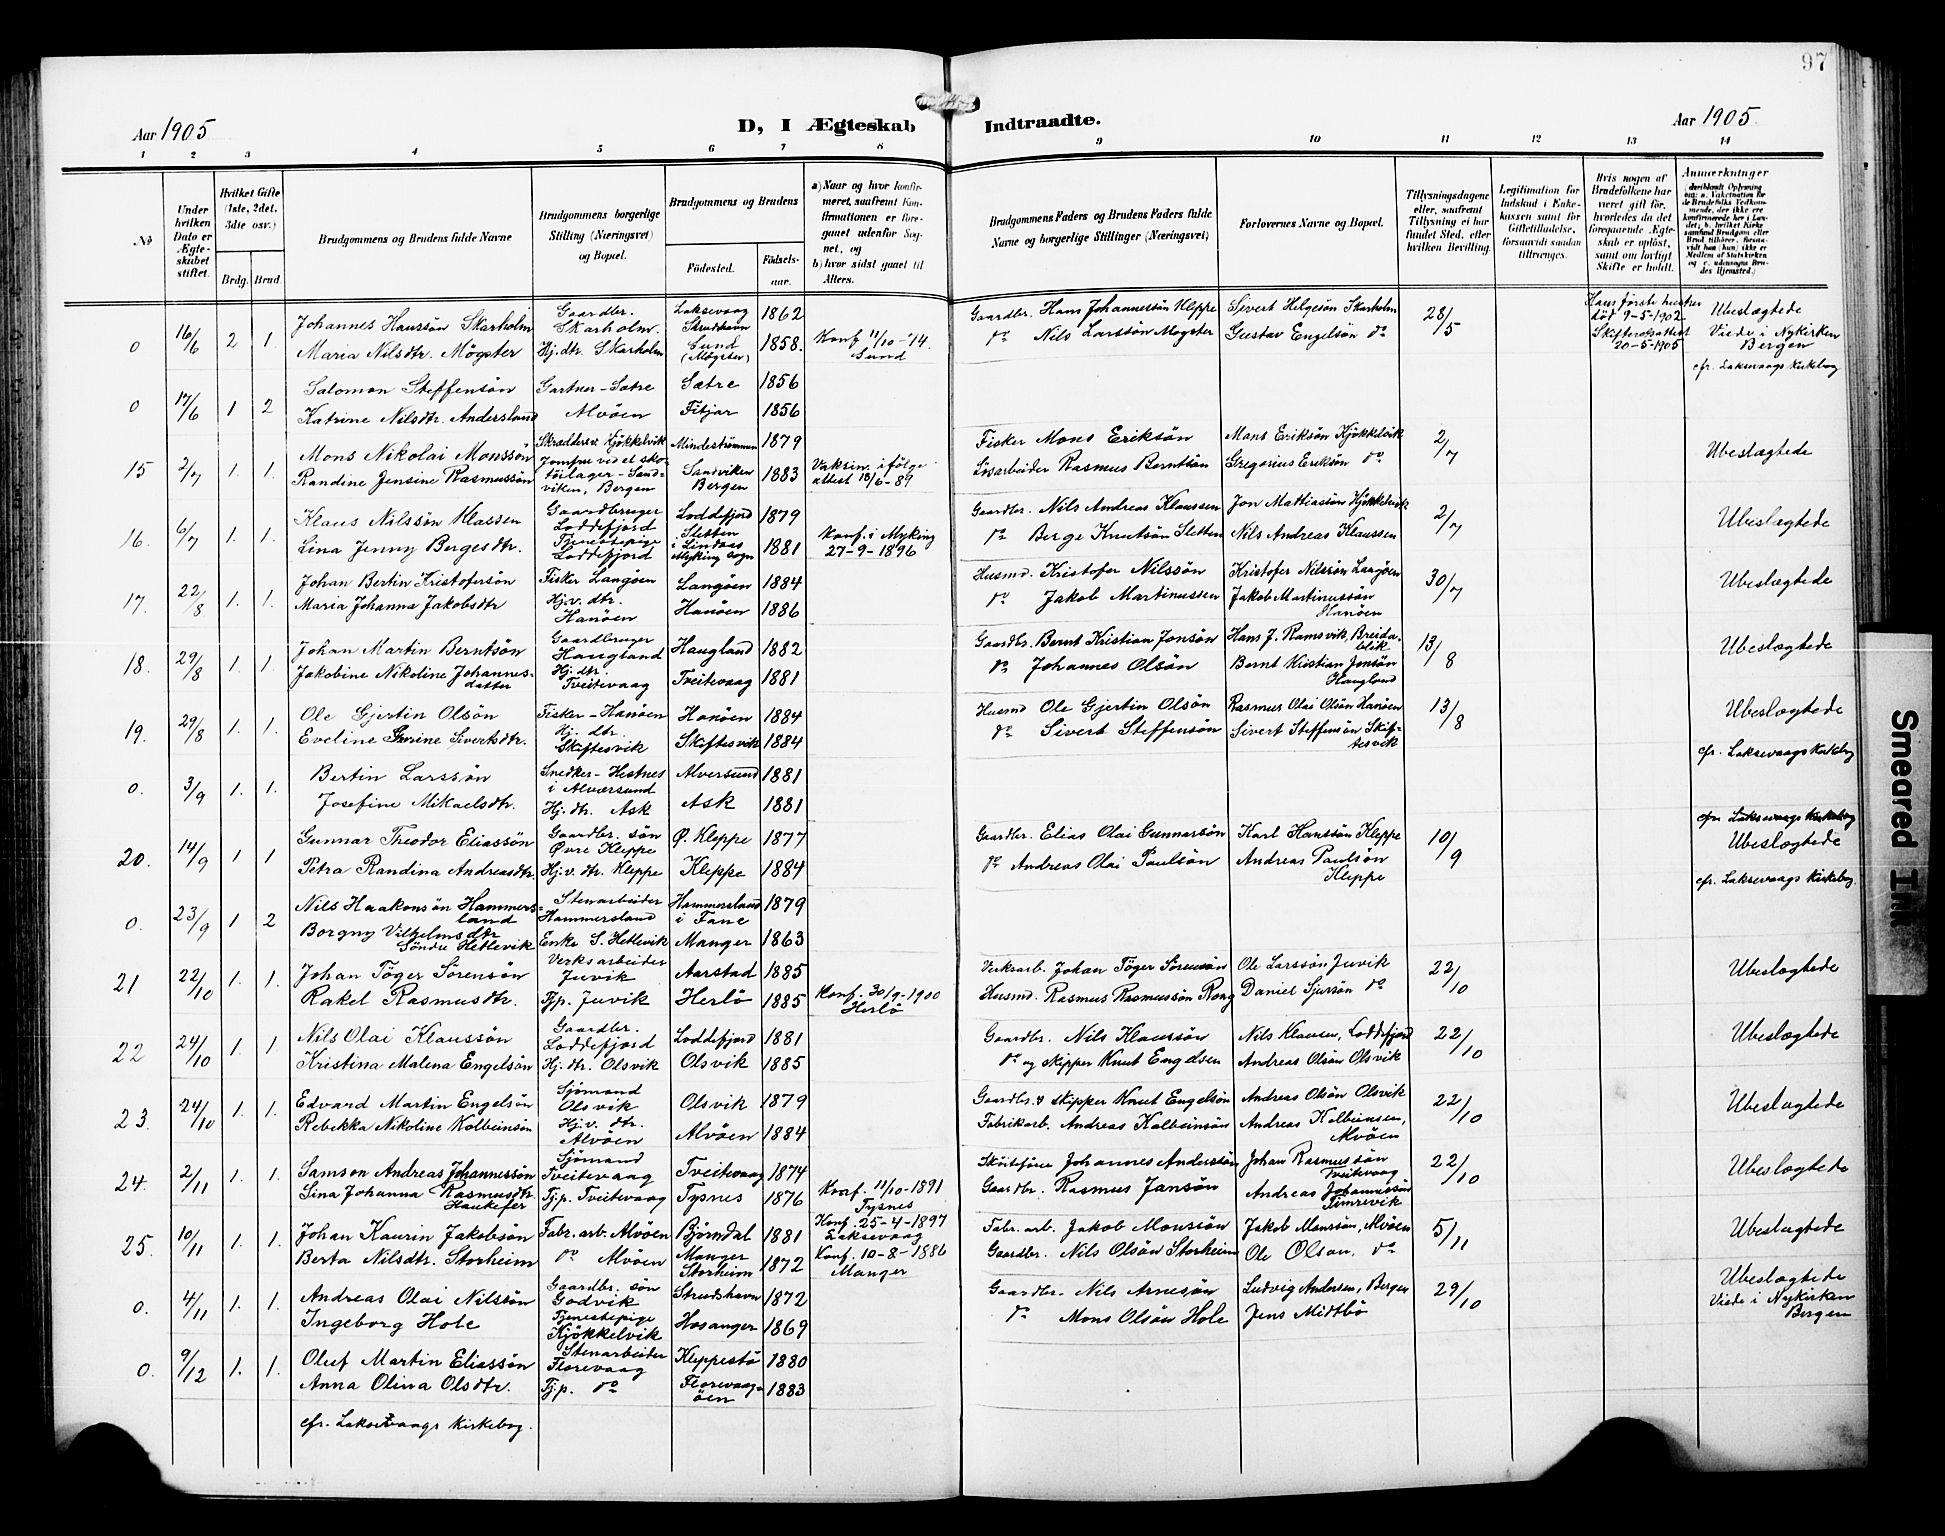 97
Aar 1905
D, I Ægteskab Indtraadte.
Aar 1905.
1 2 3 4 5 6 7 8 9 10 11 12 13 14
No
Under hvilken Dato er Ægteskabet stiftet.
Hvilket Gifte (1ste, 2det, 3dte osv.)
Brdg. Brud.
Brudgommens og Brudens fulde Navne
Brudgommens borgerlige Stilling (Næringsvei) og Bopæl.
Brudgommens og Brudens
Fødested.
Fødselsaar.
a) Naar og hvor konfirmeret, saafremt Konfirmationen er foregaaet udenfor Sognet, og
b) hvor sidst gaaet til Alters.
Brudgommens Faders og Brudens Faders fulde Navne og borgerlige Stillinger (Næringsvei)
Forlovernes Navne og Bopæl.
Tillysningsdagene eller, saafremt Tillysning ei har fundet Sted, efter hvilken Bevilling.
Legitimation for Indskud i Enkekassen samt for Giftetilladelse, forsaavidt saadan tiltrænges.
Hvis nogen af Brudefolkene har været gift før, hvorledes da det foregaaende Ægteskab er opløst, samt om lovligt Skifte er holdt.
Anmærkninger
0 16/6 2 1.
Johannes Hanssön Skarholm Gaardbr. Skarholm. Laksevaag Skrudshavn 1862
Maria Nilsdtr. Mögster Hj. dtr. Skarholm Sund (Mögster) 1858. Konf. 11/10-74. Sund
Gaardbr. Hans Johannessön Kleppe Sivert Helgesön Skarholm 28/5
do Nils Larssön Mogster Gustav Engelsön do
Hans første hustru död 9-5-1902. Skifteretsattest 20-5-1905
Ubeslægtede Viede i Nykirken Bergen
cfr. Laksevaags Kirkebog
0 17/6 1 2
Salomon Steffensön Gartner-Sætre Sætre 1856
Katrine Nilsdtr. Andersland Alvöen Fitjar 1856
15 2/7 1. 1.
Mons Nikolai Monssön Skræddersv. Kjökkelvik Mindeströmmen 1879
Randine Jensine Rasmussön Jomfru ved et skotöilager-Sandviken, Bergen Sandviken Bergen 1883 Vaksin. ifölge attest 18/6-89
Fisker Mons Eriksön Mons Eriksön Kjökkelvik 2/7
Lösarbeider Rasmus Berntsön Gregorius Eriksön do
Ubeslægtede
16. 6/7 1. 1.
Klaus Nilssön Klassen Gaardbruger Loddefjord Loddefjord 1879
Lina Jenny Bergesdtr. Tjenestepige Loddefjord Sletten i Lindaas Myking sogn 1881 Konf. i Myking 27-9-1896
Gaardbr. Nils Andreas Klaussen Jon Mathiassön Kjökkelvik 2/7
do Berge Knutsön Sletten Nils Andreas Klaussen
Ubeslægtede
17. 22/8 1. 1.
Johan Bertin Kristofersön Fisker Langöen Langöen 1884
Maria Johanna Jakobsdtr Hj.v. dtr. Hanöen Hanöen 1886
Husmd. Kristofer Nilssön Kristofer Nilssön Langöen 30/7
do Jakob Martinussen Jakob Martinussön Hanöen
Ubeslægtede
18. 29/8 1. 1.
Johan Martin Berntsön Gaardbruger Haugland Haugland 1882
Jakobine Nikoline Johannesdatter Hj. dtr. Tveitevaag Tveitevaag 1881
Gaardbr. Bernt Kristian Jonsön Hans J. Ramsvik, Breidablik 13/8
do Johannes Olsön Bernt Kristian Jonsön Haugland
Ubeslægtede
19. 29/8 1. 1.
Ole Gjertin Olsön Fisker-Hanöen Hanöen 1884
Eveline Sivertsdtr. Hj. dtr. Skiftesvik Skiftesvik 1884
Husmd Ole Gjertin Olsön Rasmus Olai Olsön Hanöen 13/8
do Sivert Steffensön Sivert Steffensön Skiftesvik
Ubeslægtede
cfr. Laksevaags Kirkebog
0. 3/9 1. 1.
Bertin Larssön Snedker-Hestnes i Alværsund Alversund 1881
Josefine Mikaelsdtr. Hj. dtr. Ask Ask 1881
cfr. Laksevaags Kirkebog
20. 14/9 1 1
Gunnar Theodor Eliassön Gaardbr. sön Övre Kleppe Ö. Kleppe 1877
Petra Randina Andreasdtr. Hj.v. dtr. Kleppe Kleppe 1884
Gaardbr. Elias Olai Gunnarsön Karl Hanssön Kleppe 10/9
do Andreas Olai Paulsön Andreas Paulsön Kleppe
Ubeslægtede
cfr. Laksevaags Kirkebog.
0. 23/9 1 2
Nils Haakonsön Hammersland Stenarbeider Hammersland Hammersland i Fane 1879
Borgny Vilhelmsdtr Söndre Hetlevik Enke S. Hetlevik Manger 1863
21 22/10 1. 1.
Johan Töger Sörensön Verksarbeider Juvik Aarstad 1885
Rakel Rasmusdtr. Tjp. Juvik Herlö 1885 Konf. 30/9-1900 Herlö
Verksarb. Johan Töger Sörensön Ole Larssön Juvik 22/10
Husmd. Rasmus Rasmussön Rong Daniel Sjursön do
Ubeslægtede
22 24/10 1. 1
Nils Olai Klaussön Gaardbr. Loddefjord Loddefjord 1881
Kristina Malena Engelsön Hj. dtr. Olsvik Olsvik 1885
Gaardbr. Nils Klaussön Nils Klausen, Loddefjord 22/10
do og skipper Knut Engelsen Andreas Olsön Olsvik
Ubeslægtede
23. 24/10 1. 1.
Edvard Martin Engelsön Sjömand Olsvik Olsvik 1879
Rebekka Nikoline Kolbeinsön Hj.v. dtr. Alvöen Alvöen 1884
Gaardbr. & skipper Knut Engelsön Andreas Olsön Olsvik 22/10
Fabrikarb. Andreas Kolbeinsön Andreas Kolbeinsen, Alvöen
Ubeslægtede
24. 2/11 1. 1.
Samson Andreas Johannessön Sjömand Tveitevaag Tveitevaag 1874
Lina Johanna Rasmusdtr. Haukefer Tj.p. Tveitevaag Tysnes 1876 Konf. 11/10-1891 Tysnes
Sköitefører Johannes Andersön Johan Rasmussön Tveitevaag 22/10
Gaardbr. Rasmus Jansön Andreas Johannessön
Ubeslægtede
25. 10/11 1. 1.
Johan Kaurin Jakobsön Fabr. arb. Alvöen Björndal 1881 Konf. 25-4-1897 Laksevaag
Berta Nilsdtr. Storheim do Alvöen Manger Storheim 1872 Konf. 10-8-1886 Manger
Fabr. arb. Jakob Monssön Jakob Monssön, Alvöen 5/11
Gaardbr. Nils Olsön Storheim Ole Olson, do
Ubeslægtede
0. 4/11 1. 1.
Andreas Olai Nilssön Gaardbr. sön Godvik Strudshavn 1872
Ingeborg Hole Tjenestepige Kjökkelvik Hosanger 1869
Gaardbr. Nils Arnesön Ludvig Andersen, Bergen 29/10
do Mons Olsön Hole Jens Midtbö
Ubeslægtede Viede i Nykirken Bergen
0. 9/12 1. 1.
Oluf Martin Eliassön Stenarbeider Florevaag Kleppestö 1880
Anna Olina Olsdtr. Tj.p. do Florevaagöen 1883
cfr. Laksevaags Kirkebog.
Smeared Ink